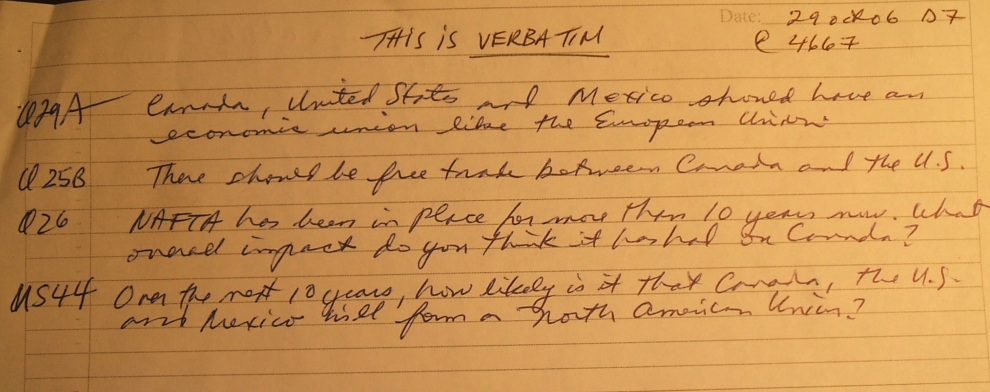 Date: 29 oct 06 D7
THIS IS VERBATIM
@ 4667
Q29A Canada, United States and Mexico should have an
economic union like the European Union.
Q25B There should be free trade between Canada and the U.S.
Q26 NAFTA has been in place for more than 10 years now. What
overall impact do you think it has had on Canada?
US44 Over the next 10 years, how likely is it that Canada, the U.S.
and Mexico will form a North American Union?